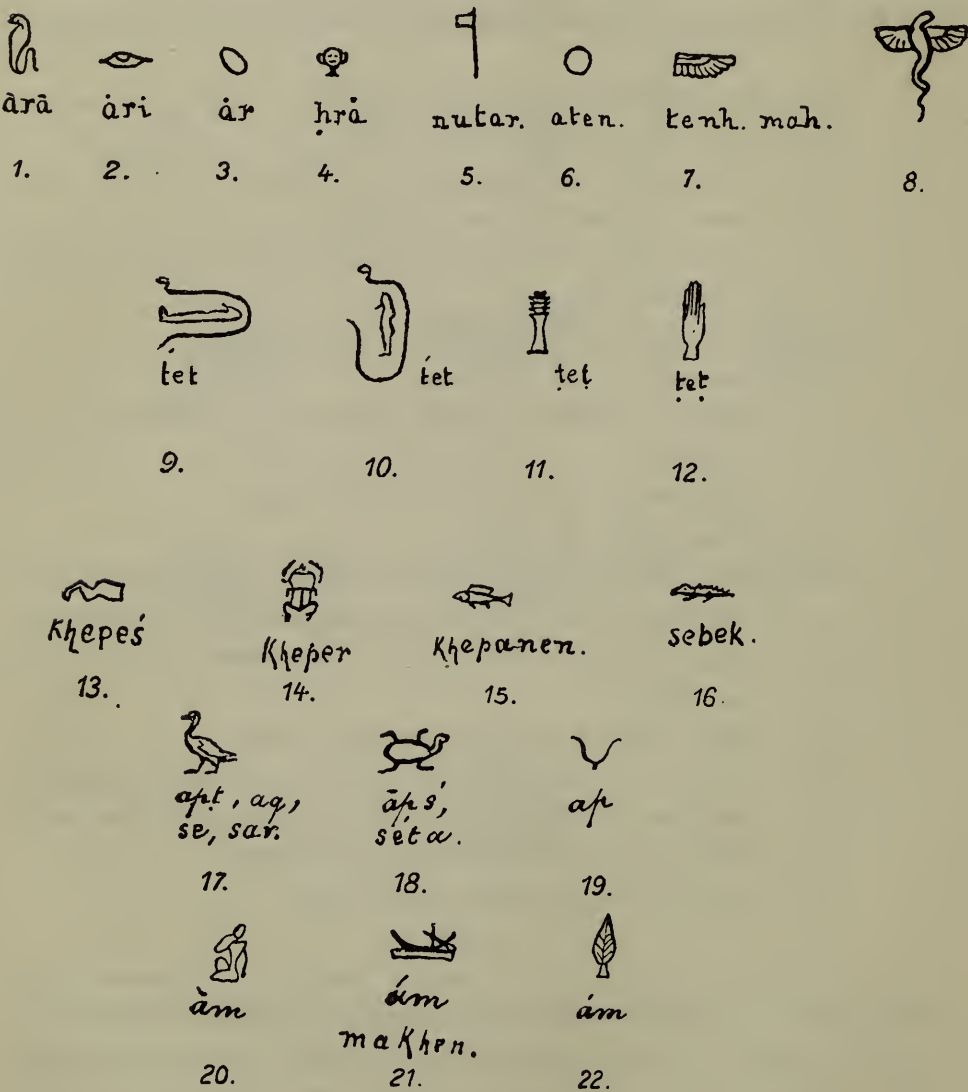 ȧrā ȧri ȧr ḥrȧ nutar. aten. tenh. mah.
1. 2. 3. 4. 5. 6. 7. 8.
t́et t́et ṭeṭ ṭeṭ
9. 10. 11. 12.
Kḥepeś Kḥeper Kḥepanen. sebek.
13. 14. 15. 16.
apṭ, aq, āpś, ap
se, sar. śeta.
17. 18. 19.
ȧm ȧm ȧm
maKhen.
20. 21. 22.